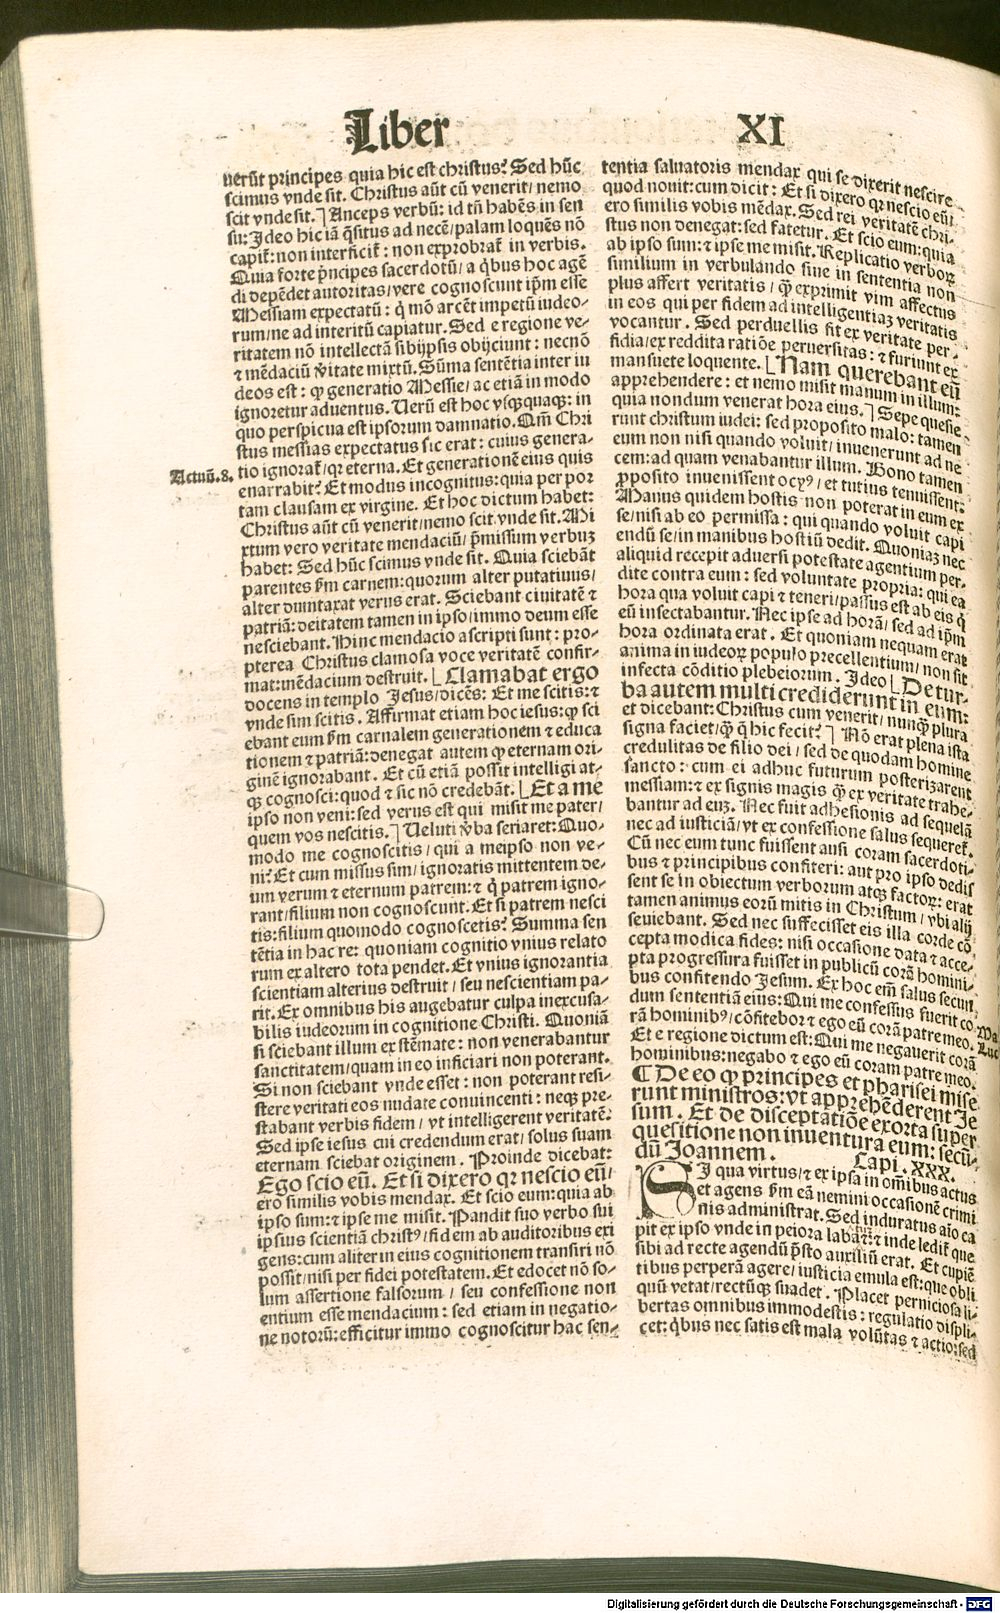 Liber XI
uerūt principes quia hic est christus? Sed hūc
scimus vnde sit. Christus aūt cū venerit/nemo
scit vnde sit.⌉ Anceps verbū: id tñ habēs in sen
su: Ideo hic iā q̄situs ad necē/palam loquēs nō
capit̄: non interficit̄: non exprobrat̄ in verbis.
Quia forte p̄ncipes sacerdotū/a q̄bus hoc agē
di depēdet autoritas/vere cognoscunt ip̄m esse
Messiam expectatū: q̄ mō arcēt impetū iudeo-
rum/ne ad interitū capiatur. Sed e regione ve-
ritatem nō intellectā sibijpsis obijciunt: necnō
⁊ mēdaciū v̄itate mixtū. Sūma sentētia inter iu
deos est: qp̄ generatio Messie/ac etiā in modo
ignoretur aduentus. Uerū est hoc v̄sq̄quaqꝫ: in
quo perspicua est ipsorum damnatio. Qm̄ Chri
stus messias expectatus sic erat: cuius genera-
Actuū.8. tio ignorat̄/qꝛ eterna. Et generationē eius quis
enarrabit? Et modus incognitus: quia per por
tam clausam ex virgine. Et hoc dictum habet:
Christus aūt cū venerit/nemo scit vnde sit. Mi
xtum vero veritate mendaciū/p̄missum verbuꝫ
habet: Sed hūc scimus vnde sit. Quia sciebāt
parentes p̄m carnem: quorum alter putatiuus/
alter duntaxat verus erat. Sciebant ciuitatē ⁊
patriā: deitatem tamen in ipso/immo deum esse
nesciebant. Hinc mendacio ascripti sunt: pro-
pterea Christus clamosa voce veritatē confir-
mat: mēdacium destruit. ⌊Clamabat ergo
docens in templo Jesus/dicēs: Et me scitis: ⁊
vnde sim scitis. Affirmat etiam hoc iesus: qp̄ sci
ebant eum p̄m carnalem generationem ⁊ educa
tionem ⁊ patriā: denegat autem qp̄ eternam ori-
ginē ignorabant. Et cū etiā possit intelligi at-
qꝫ cognosci: quod ⁊ sic nō credebāt. ⌊Et a me
ipso non veni: sed verus est qui misit me pater/
quem vos nescitis.⌉ Ueluti v̄ba seriaret: Quo-
modo me cognoscitis/qui a meipso non ve-
ni? Et cum missus sim/ignoratis mittentem de-
um verum ⁊ eternum patrem: ⁊ q̄ patrem igno-
rant/filium non cognoscunt. Et si patrem nesci
tis: filium quomodo cognoscetis? Summa sen
tētia in hac re: quoniam cognitio vnius relato
rum ex altero tota pendet. Et vnius ignorantia
scientiam alterius destruit/seu nescientiam pa-
rit. Ex omnibus his augebatur culpa inexcusa-
bilis iudeorum in cognitione Christi. Quoniā
si sciebant illum ex stēmate: non venerabantur
sanctitatem/quam in eo inficiari non poterant.
Si non sciebant vnde esset: non poterant resi-
stere veritati eos nudate conuincenti: neqꝫ pre-
stabant verbis fidem/vt intelligerent veritatē:
Sed ipse iesus cui credendum erat/solus suam
eternam sciebat originem. Proinde dicebat:
Ego scio eū. Et si dixero qꝛ nescio eū/
ero similis vobis mendax. Et scio eum: quia ab
ipso sum: ⁊ ipse me misit. Pandit suo verbo sui
ipsius scientiā christꝰ/fidem ab auditoribus exi
gens: cum aliter in eius cognitionem transiri nō
possit/nisi per fidei potestatem. Et edocet nō so-
lum assertione falsorum/seu confessione non
entium esse mendacium: sed etiam in negatio-
ne notorū: efficitur immo cognoscitur hac sen-
tentia saluatoris mendax qui se dixerit nescire
quod nouit: cum dicit: Et si dixero qꝛ nescio eū:
ero similis vobis mēdax. Sed rei veritatē chri-
stus non denegat: sed fatetur. Et scio eum: quia
ab ipso sum: ⁊ ipse me misit. Replicatio verboꝝ
similium in verbulando siue in sententia non
plus affert veritatis/qp̄ exprimit vim affectus
in eos qui per fidem ad intelligentiaꝫ veritatis
vocantur. Sed perduellis fit ex veritate per-
fidia/ex reddita ratiōe peruersitas: ⁊ furiunt ex
mansuete loquente. ⌊Nam querebant eū
apprehendere: et nemo misit manum in illum:
quia nondum venerat hora eius.⌉ Sepe quesie
runt christum iudei: sed proposito malo: tamen
eum non nisi quando voluit/inuenerunt ad ne
cem: ad quam venabantur illum. Bono tamen
p̄posito inuenissent ocyꝰ/et tutius tenuissent:
Manus quidem hostis non poterat in eum ex
se/nisi ab eo permissa: qui quando voluit capi
endū se/in manibus hostiū dedit. Quoniaꝫ nec
aliquid recepit aduersi potestate agentium per-
dite contra eum: sed voluntate propria: qui ea
hora qua voluit capi ⁊ teneri/passus est ab eis q̄
eū insectabantur. Nec ipse ad horā/sed ad ip̄m
hora ordinata erat. Et quoniam nequam erat
anima in iudeoꝝ populo precellentium/non sit
infecta cōditio plebeiorum. Ideo ⌊De tur-
ba autem multi crediderunt in eum:
et dicebant: Christus cum venerit/nunqp̄ plura
signa faciet/qp̄ q̄ hic fecit?⌉ Nō erat plena ista
credulitas de filio dei/sed de quodam homine
sancto: cum ei adhuc futurum posterizarent
messiam: ⁊ ex signis magis qp̄ ex veritate trahe-
bantur ad euꝫ. Nec fuit adhesionis ad sequelā
nec ad iusticiā/vt ex confessione salus sequeret̄.
Cū nec eum tunc fuissent ausi coram sacerdoti-
bus ⁊ principibus confiteri: aut pro ipso dedis
sent se in obiectum verborum atqꝫ factoꝝ: erat
tamen animus eorū mitis in Christum/vbi alij
seuiebant. Sed nec suffecisset eis illa corde cō
cepta modica fides: nisi occasione data ⁊ acce-
pta progressura fuisset in publicū corā homini-
bus confitendo Jesum. Ex hoc em̄ salus secun
dum sententiā eius: Qui me confessus fuerit co-
rā hominibꝰ/cōfitebor ⁊ ego eū corā patre meo. Ma
Et e regione dictum est: Qui me negauerit corā Luc
hominibus: negabo ⁊ ego eū coram patre meo.
¶ De eo qp̄ principes et pharisei mise
runt ministros: vt apprehēderent Je
sum. Et de disceptatiōe exorta super
quesitione non inuentura eum: secū-
dū Joannem. Capi. XXX.
SI qua virtus/⁊ ex ipsa in omnibus actus
et agens p̄m eā nemini occasionē crimi
nis administrat. Sed induratus aīo ca
pit ex ipso vnde in peiora labat̄: ⁊ inde ledit̄ que
sibi ad recte agendū p̄sto auxiliū erat. Et cupiē
tibus perperā agere/iusticia emula est: que obli
quū vetat/rectūqꝫ suadet. Placet perniciosa li-
bertas omnibus immodestis: regulatio displi-
cet: q̄bus nec satis est mala volūtas ⁊ actio: sed
Digitalisierung gefördert durch die Deutsche Forschungsgemeinschaft - DFG